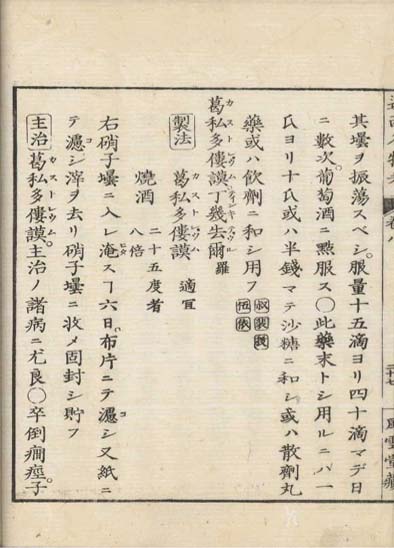 其壜ヲ振蕩スベシ。服量十五滴ヨリ四十滴マデ日
ニ數次。葡萄酒ニ點服ス〇此藥末トシ用ルニハ一
氏ヨリ十氏或ハ半錢マテ沙糖ニ和シ或ハ散劑丸
藥或ハ飮劑ニ和シ用フ
葛私多僂謨丁幾去爾 羅
製法 葛私多僂謨 適宜
燒酒 二十五度者 八倍
右硝子壜ニ入レ淹スヿ六日。布片ニテ濾シ又紙ニ
テ濾シ滓ヲ去リ硝子壜ニ收メ固封シ貯フ
主治 葛私多僂謨。主治ノ諸病ニ尤良〇卒倒癎痙。子